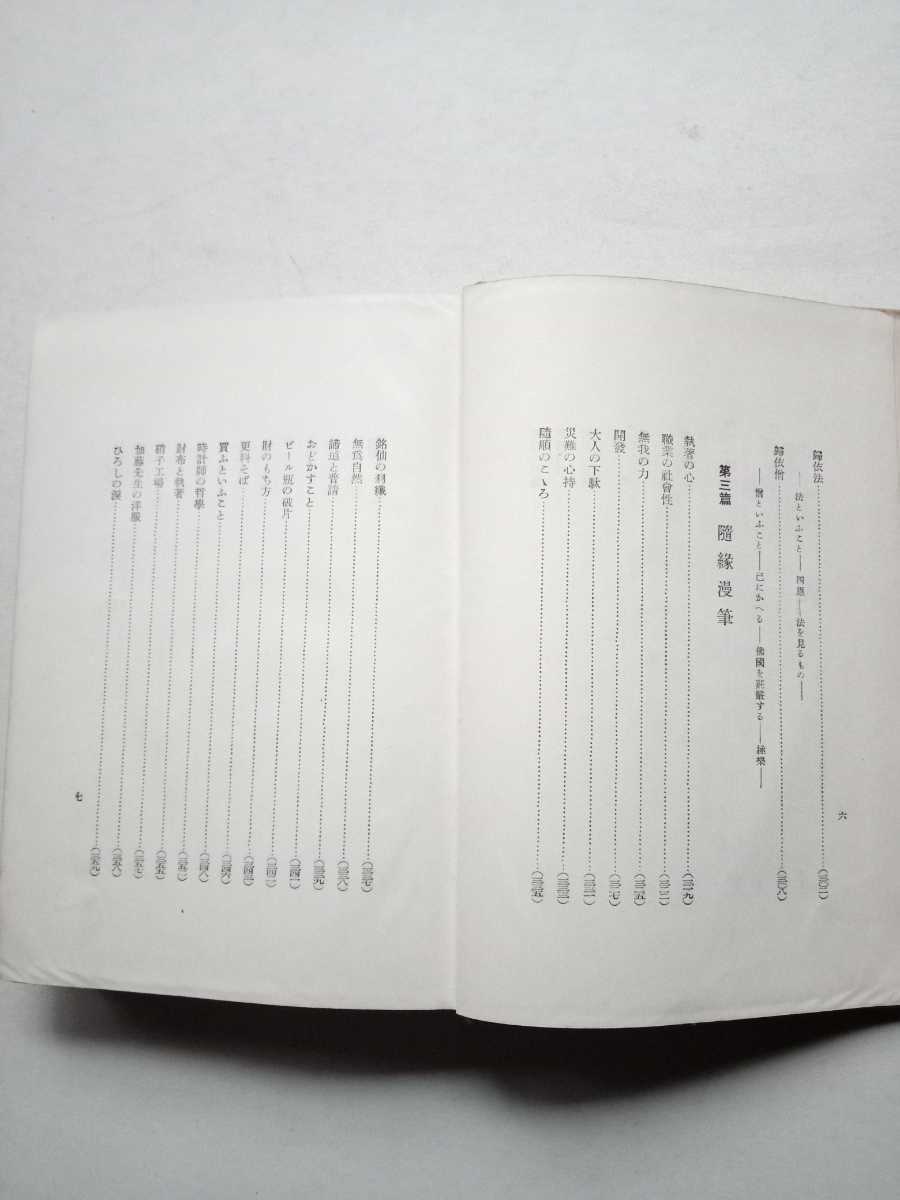 歸依法……(三〇二)
――法といふこと――四恩――法を見るもの――
歸依僧……(三〇八)
――僧といふこと――己にかへる――佛國を莊嚴する――極樂――
第三篇 隨緣漫筆
執著の心……(三一九)
職業の社會性……(三二二)
無我の力……(三二五)
開發……(三二七)
大人の下駄……
災難の心持……
隨順のこゝろ……(三三五)
六
銘仙の羽織……(三三七)
無爲自然……(三三八)
諦道と普請……(三三九)
おどかすこと……(三四一)
ビール瓶の破片……
財のもち方……
更科そば……
買ふといふこと……(三四六)
時計師の哲學……(三四八)
財布と執著……
硝子工場……(三五五)
加藤先生の洋服……(三五七)
ひろしの淚……(三五八)
……(三五九)
七